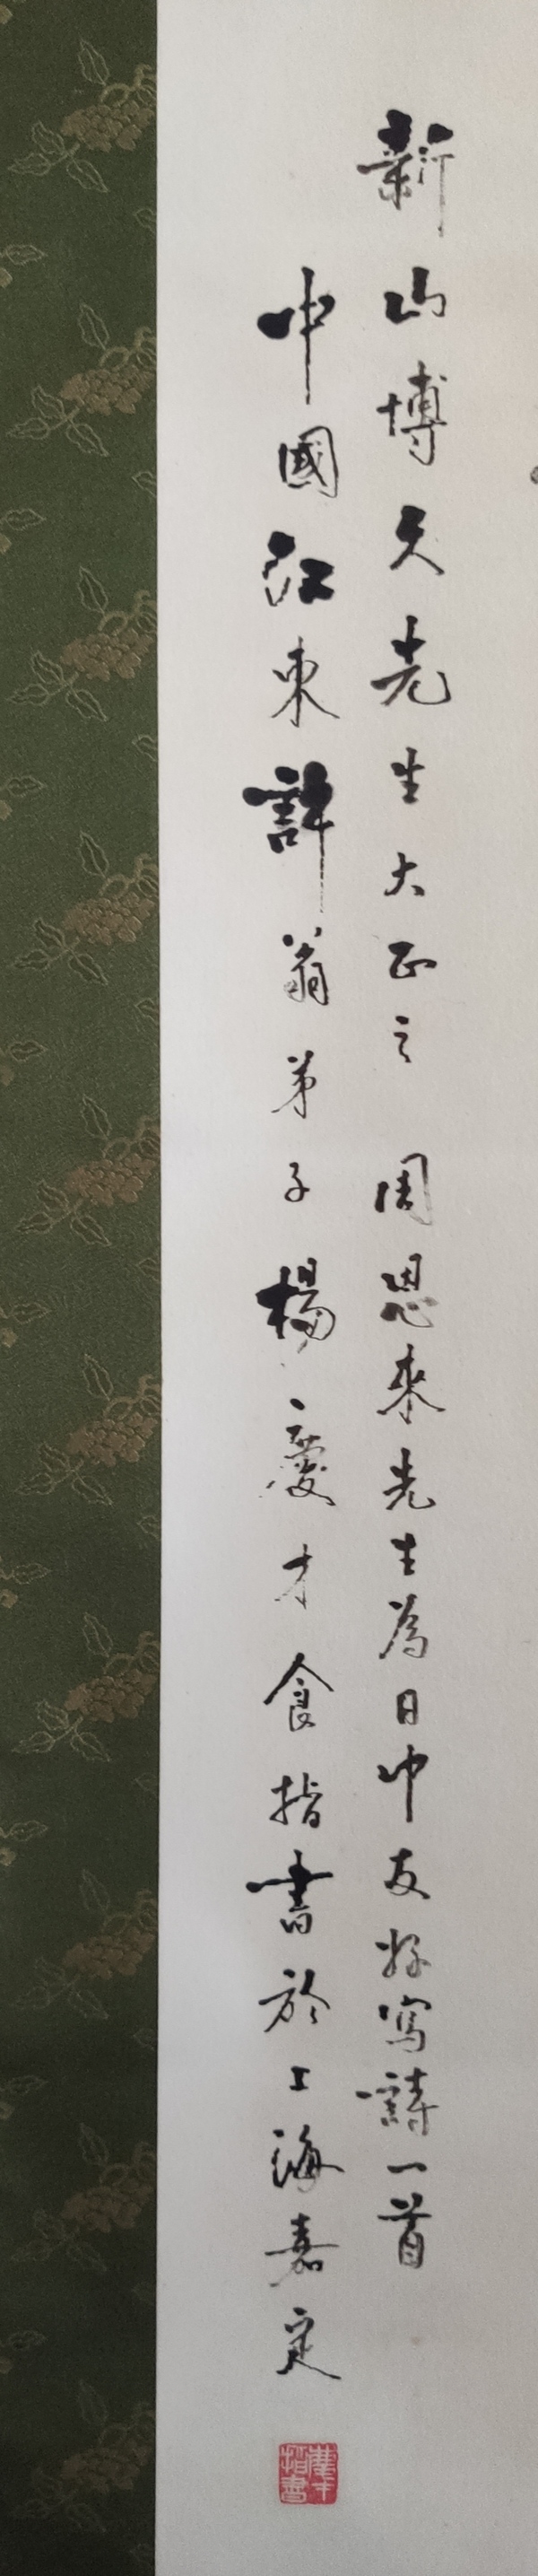 新山博久先生大正之 周恩來先生為日中友好寫詩一首
中國江東許翁弟子楊慶才食指書於上海嘉定
慶才指書